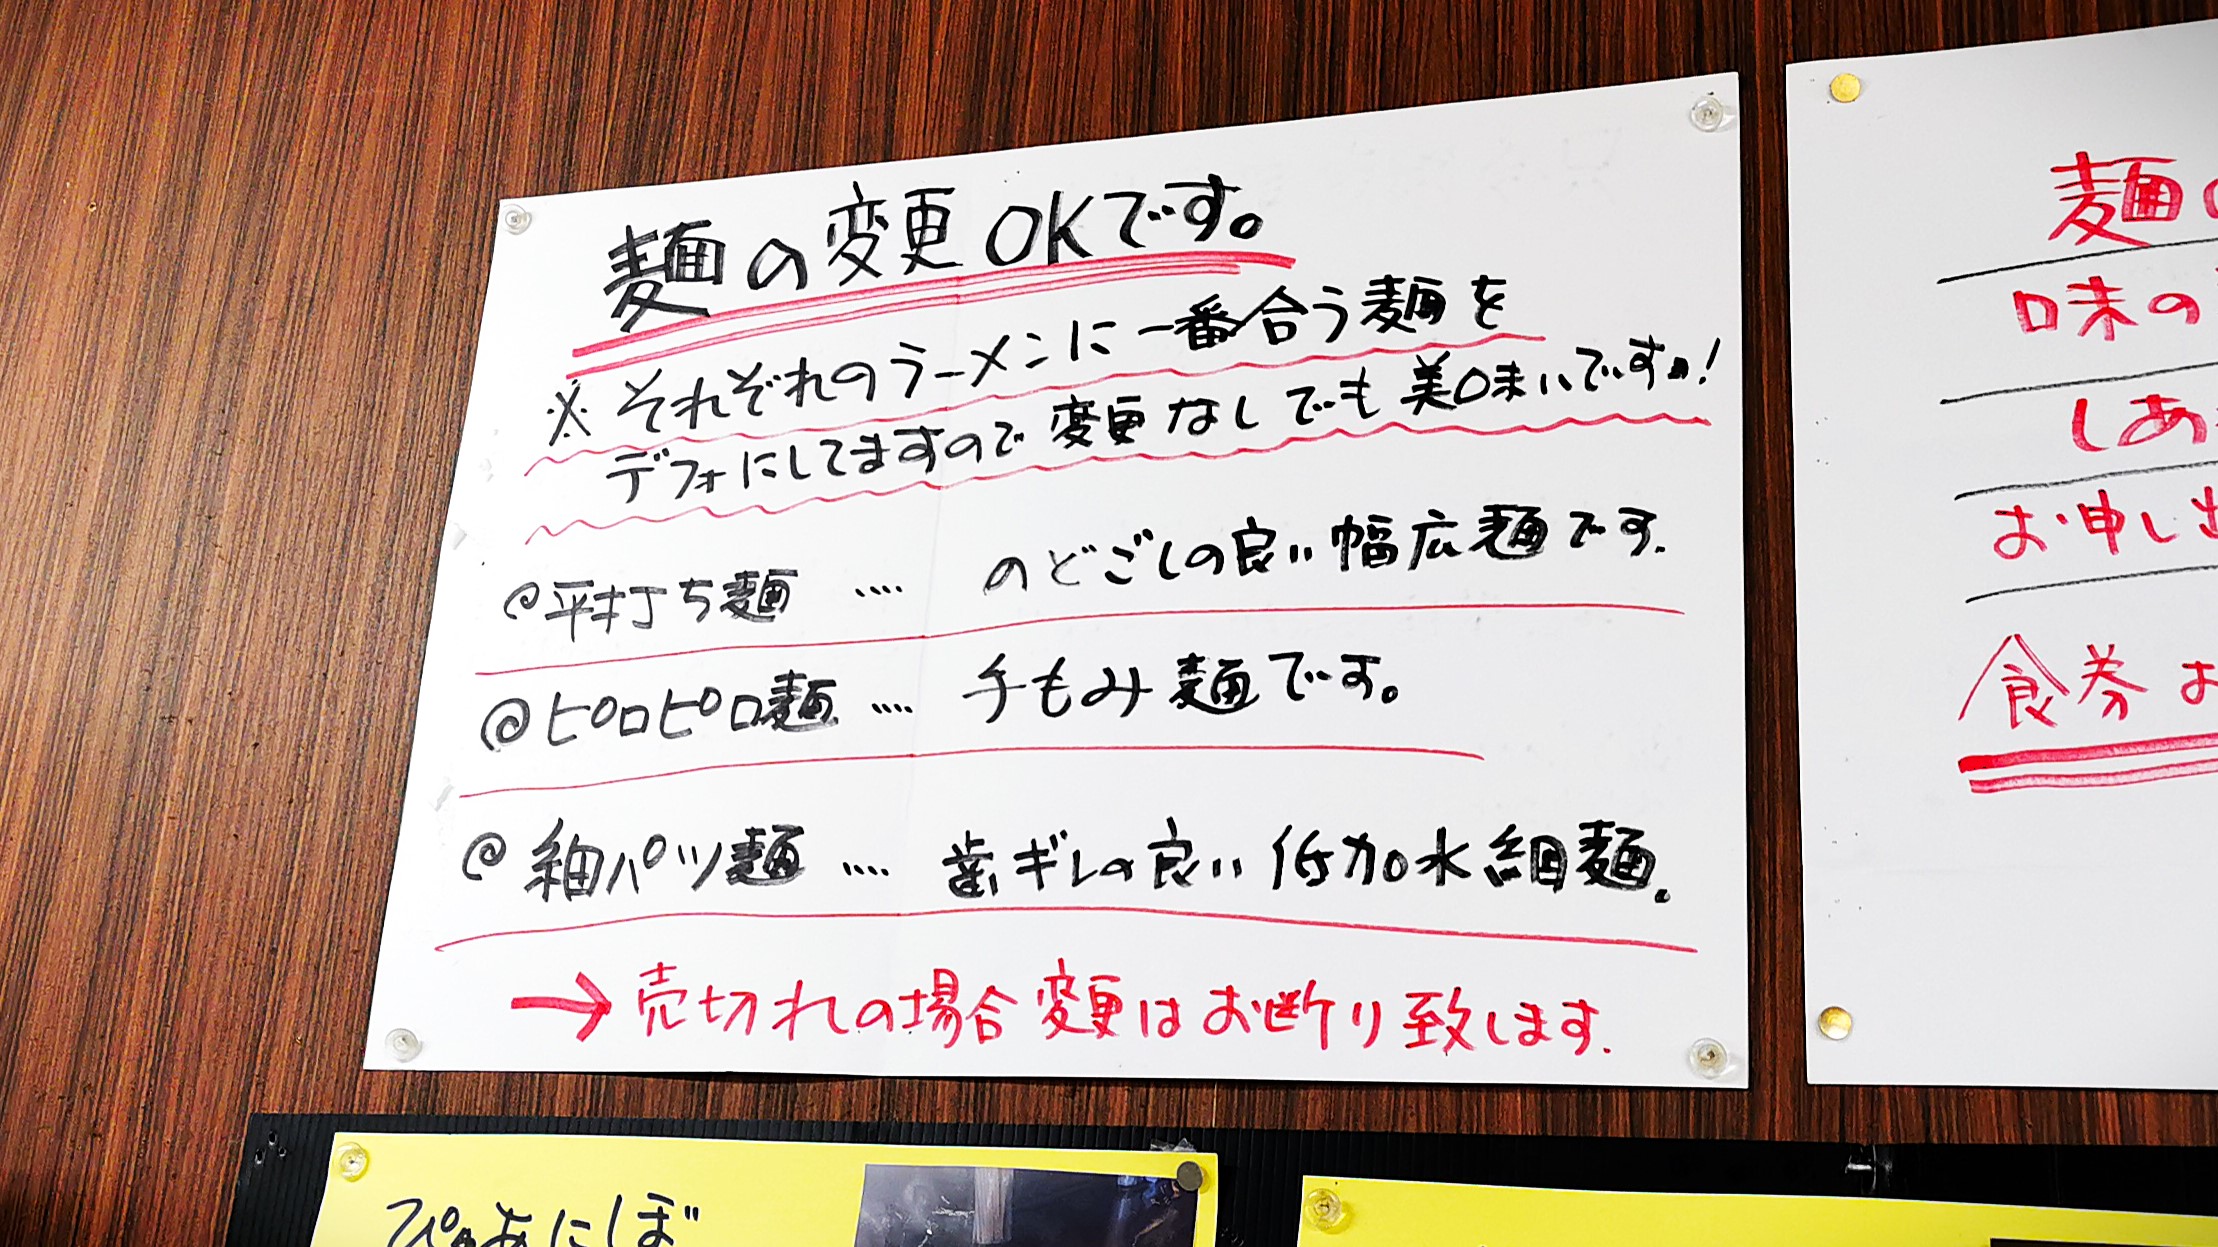 麺の変更OKです。
※それぞれのラーメンに一番合う麺を
デフォにしてますので変更なしでも美味いですm!
@平打ち麺 .... のどごしの良い幅広麺です.
@ピロピロ麺.... 手もみ麺です。
@細パツ麺 .... 歯ギレの良い低加水細麺.
→売切れの場合変更はお断り致します.
麺の
味の
しあ
お申し出
食券お
ぴゅあにぼ